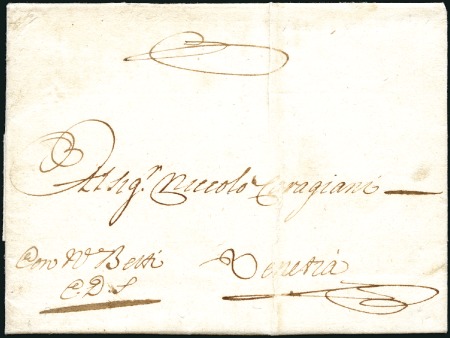 Al Sig.r Niccolo Caragiani
Con N.o Betti
C. D. S.
Venetia